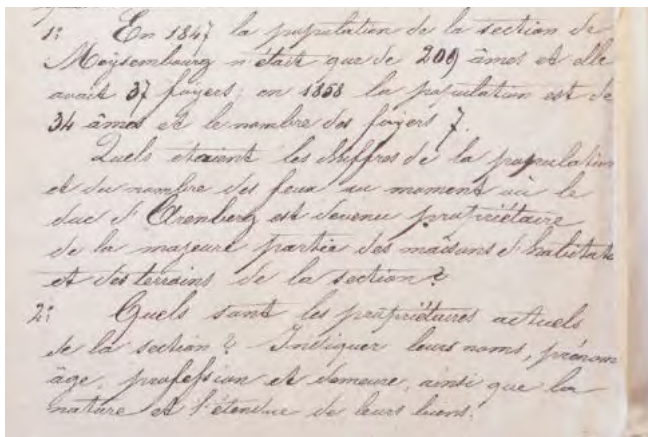 1: En 1847 la population de la section de
Meysembourg n'était que de 209 âmes et elle
avait 37 foyers; en 1858 la population est de
34 âmes et le nombre des foyers 7.
Quels étaient les chiffres de la population
et du nombre des feux au moment où le
duc d'Arenberg est devenu propriétaire
de la majeure partie des maisons d'habitati
et des terrains de la section?
2: Quels sont les propriétaires actuels
de la section? Indiquer leurs noms, prénom
âge, profession et demeure, ainsi que la
nature et l'étendue de leurs biens.